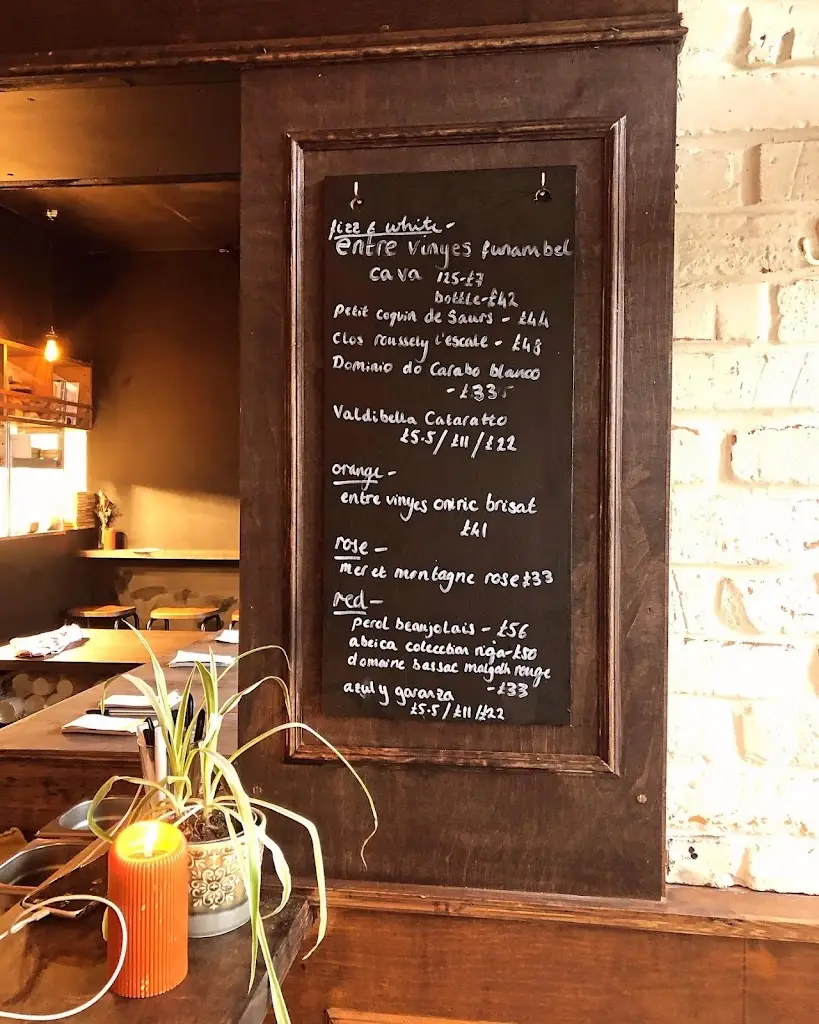 fizz & white -
entre vinyes funambel
cava 125-£7
bottle-£42
Petit coquin de Saurs - £44
Clos roussely l'escale - £43
Dominio do Carabo blanco
- £33
Valdibella Cataratto
£5.5/£11/£22
orange -
entre vinyes oniric brisat
£41
rose -
mer et montagne rose £33
red -
perol beaujolais - £56
abeica colección rioja-£50
domaine bassac malgoth rouge
- £33
azul y garanza
£5.5/£11/£22